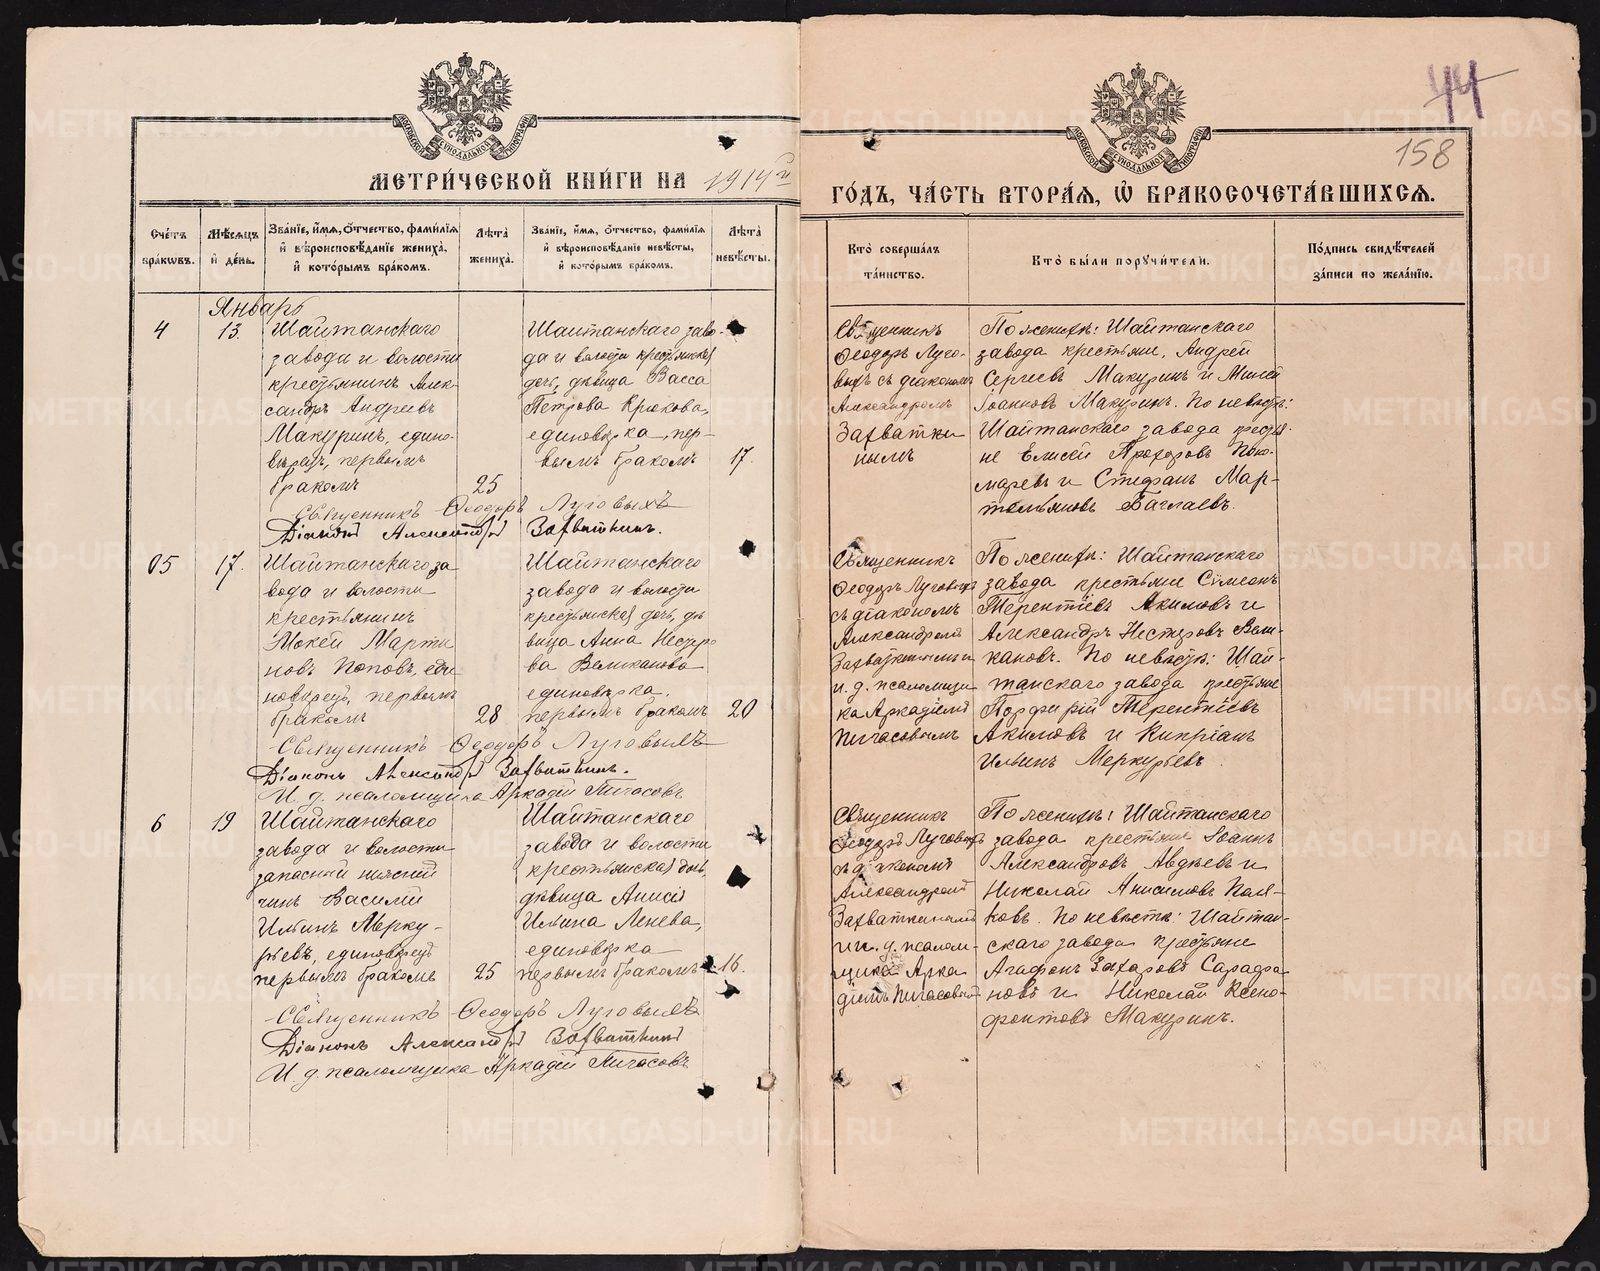 МЕТРИЧЕСКОЙ КНИГИ НА 1914й
ГОДЪ, ЧАСТЬ ВТОРАЯ, Ѡ БРАКОСОЧЕТАВШИХСЯ.
44
158
Счетъ браковъ.
Мѣсяцъ и день.
Званіе, имя, отчество, фамилія и вѣроисповѣданіе жениха, и которымъ бракомъ.
Лѣта жениха.
Званіе, имя, отчество, фамилія и вѣроисповѣданіе невѣсты, и которымъ бракомъ.
Лѣта невѣсты.
Кто совершалъ таинство.
Кто были поручители.
Подпись свидѣтелей записи по желанію.
Январь
4
13.
Шайтанскаго
завода и волости
крестьянинъ Алек-
сандръ Андреевъ
Макуринъ, едино-
вѣрецъ, первымъ
бракомъ
25
Шайтанскаго заво-
да и волости крестьянская
дочь, дѣвица Васса
Петрова Крюкова,
единовѣрка, пер-
вымъ бракомъ
17.
Священникъ
Ѳеодоръ Луго-
выхъ съ діакономъ
Александромъ
Захватки
нымъ
По женихѣ: Шайтанскаго
завода крестьяне, Андрей
Сергеевъ Макуринъ и
Іоанновъ Макуринъ. По невѣстѣ:
Шайтанскаго завода крестья-
не Елисей Прохоровъ Поно-
маревъ и Стефанъ Мар-
темьяновъ
Священникъ Ѳеодоръ Луговыхъ
Діаконъ Александръ Захваткинъ.
05
17.
Шайтанскаго за
вода и волости
крестьянинъ
Мокей Марти
новъ Поповъ, еди
новѣрецъ, первымъ
бракомъ
28
Шайтанскаго
завода и волости
крестьянская дочь, дѣ
вица Анна Нестеро
ва Великанова
единовѣрка.
первымъ бракомъ
20
Священникъ
Ѳеодоръ Луговыхъ
съ діакономъ
Александромъ
Захваткинымъ и
и. д. псаломщи
ка Аркадіемъ
Пигасовымъ
По женихѣ: Шайтанскаго
завода крестьяне Симеонъ
Терентіевъ Акиловъ и
Александръ Нестеровъ Вели-
кановъ. По невѣстѣ: Шай-
танскаго завода крестьяне
Порфирій Терентіевъ
Акиловъ и Кипріанъ
Ильинъ Меркурьевъ.
Священникъ Ѳеодоръ Луговыхъ
Діаконъ Александръ Захваткинъ.
И. д. псаломщика Аркадій Пигасовъ
6
19
Шайтанскаго
завода и волости
запасный нижній
чинъ Василій
Ильинъ Мерку-
рьевъ, единовѣрецъ
первымъ бракомъ
25
Шайтанскаго
завода и волости
крестьянская дочь,
дѣвица Анисія
Ильина Ленева,
единовѣрка
первымъ бракомъ
16.
Священникъ
Ѳеодоръ Луговыхъ
съ діакономъ
Александромъ
Захваткинымъ
и и. д. псалом-
щика Арка
діемъ Пигасовымъ
По женихѣ: Шайтанскаго
завода крестьяне Іоаннъ
Александровъ Авдѣевъ и
Николай Анисимовъ Поля-
ковъ. По невѣстѣ: Шайтан-
скаго завода крестьяне
Агафонъ Захаровъ Сарафа
новъ и Николай Ксено-
фонтовъ Макуринъ.
Священникъ Ѳеодоръ Луговыхъ
Діаконъ Александръ Захваткинъ
И. д. псаломщика Аркадій Пигасовъ
METRIKI.GASO-URAL.RU